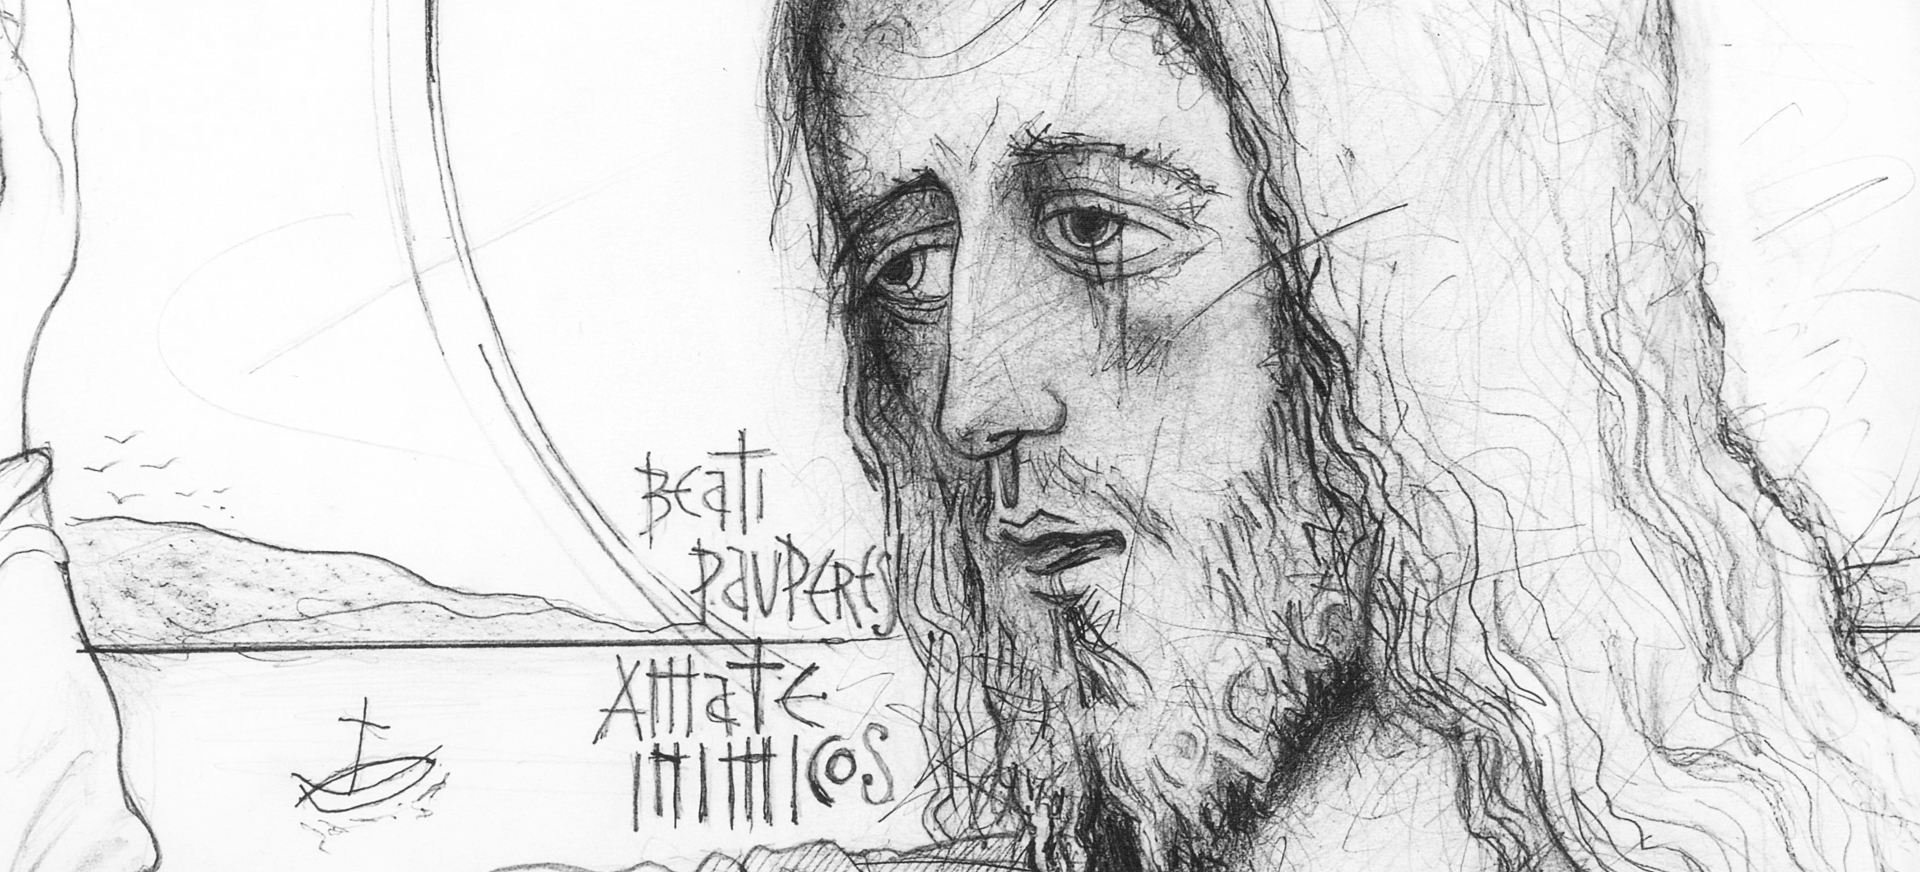 BEaTi
PaUPERES
AMaTE
INIMICOS